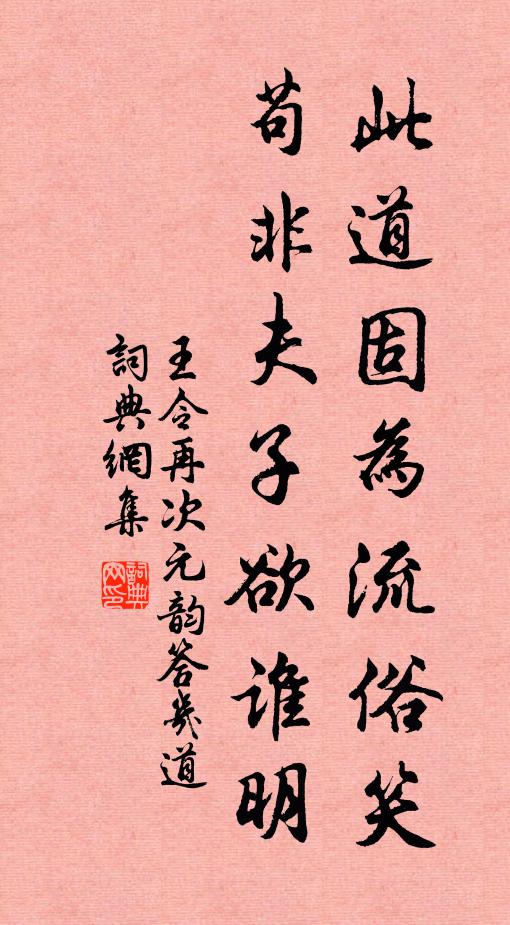 此道固為流俗笑
苟非夫子欲誰明
王令再次元韵答幾道
詞典網集
詞典網印